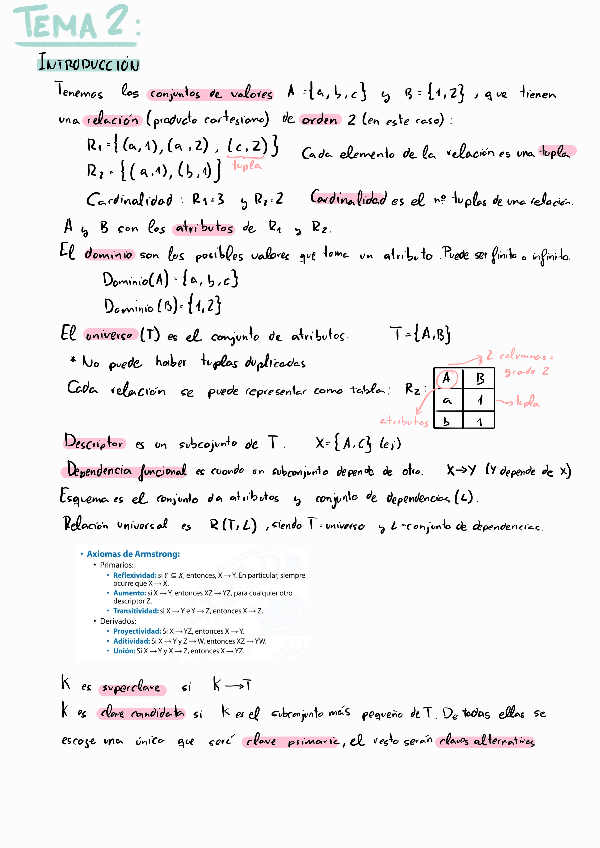 TEMA 2:
INTRODUCCIÓN
Tenemos los conjuntos de valores A = {a, b, c} y B = {1, 2}, que tienen
una relación (producto cartesiano) de orden 2 (en este caso):
R1 = {(a,1), (a,2), (c,2)} Cada elemento de la relación es una tupla
tupla
R2 = {(a,1), (b,1)}
Cardinalidad: R1=3 y R2=2 Cardinalidad es el nº tuplas de una relación.
A y B son los atributos de R1 y R2.
El dominio son los posibles valores que toma un atributo. Puede ser finito o infinito.
Dominio(A) = {a, b, c}
Dominio(B) = {1, 2}
El universo (T) es el conjunto de atributos. T = {A,B}
* No puede haber tuplas duplicadas
2 columnas =
grado 2
Cada relación se puede representar como tabla: R2:
A B
a 1
tupla
atributos
b 1
Descriptor es un subcojunto de T. X = {A,C} (ej)
Dependencia funcional es cuando un subconjunto depende de otro. X→Y (Y depende de X)
Esquema es el conjunto da atributos y conjunto de dependencias (L).
Relación universal es R(T,L), siendo T=universo y L=conjunto de dependencias.
• Axiomas de Armstrong:
• Primarios:
• Reflexividad: si Y ⊆ X, entonces, X → Y. En particular, siempre
ocurre que X → X.
• Aumento: si X → Y, entonces XZ → YZ, para cualquier otro
descriptor Z.
• Transitividad: si X → Y e Y → Z, entonces X → Z.
• Derivados:
• Proyectividad: Si X → YZ, entonces X → Y.
• Aditividad: Si X → Y y Z → W, entonces XZ → YW.
• Unión: Si X → Y y X → Z, entonces X → YZ.
K es superclave si K → T
K es clave candidata si K es el subconjunto más pequeño de T. De todas ellas se
escoge una única que será clave primaria, el resto serán claves alternativas